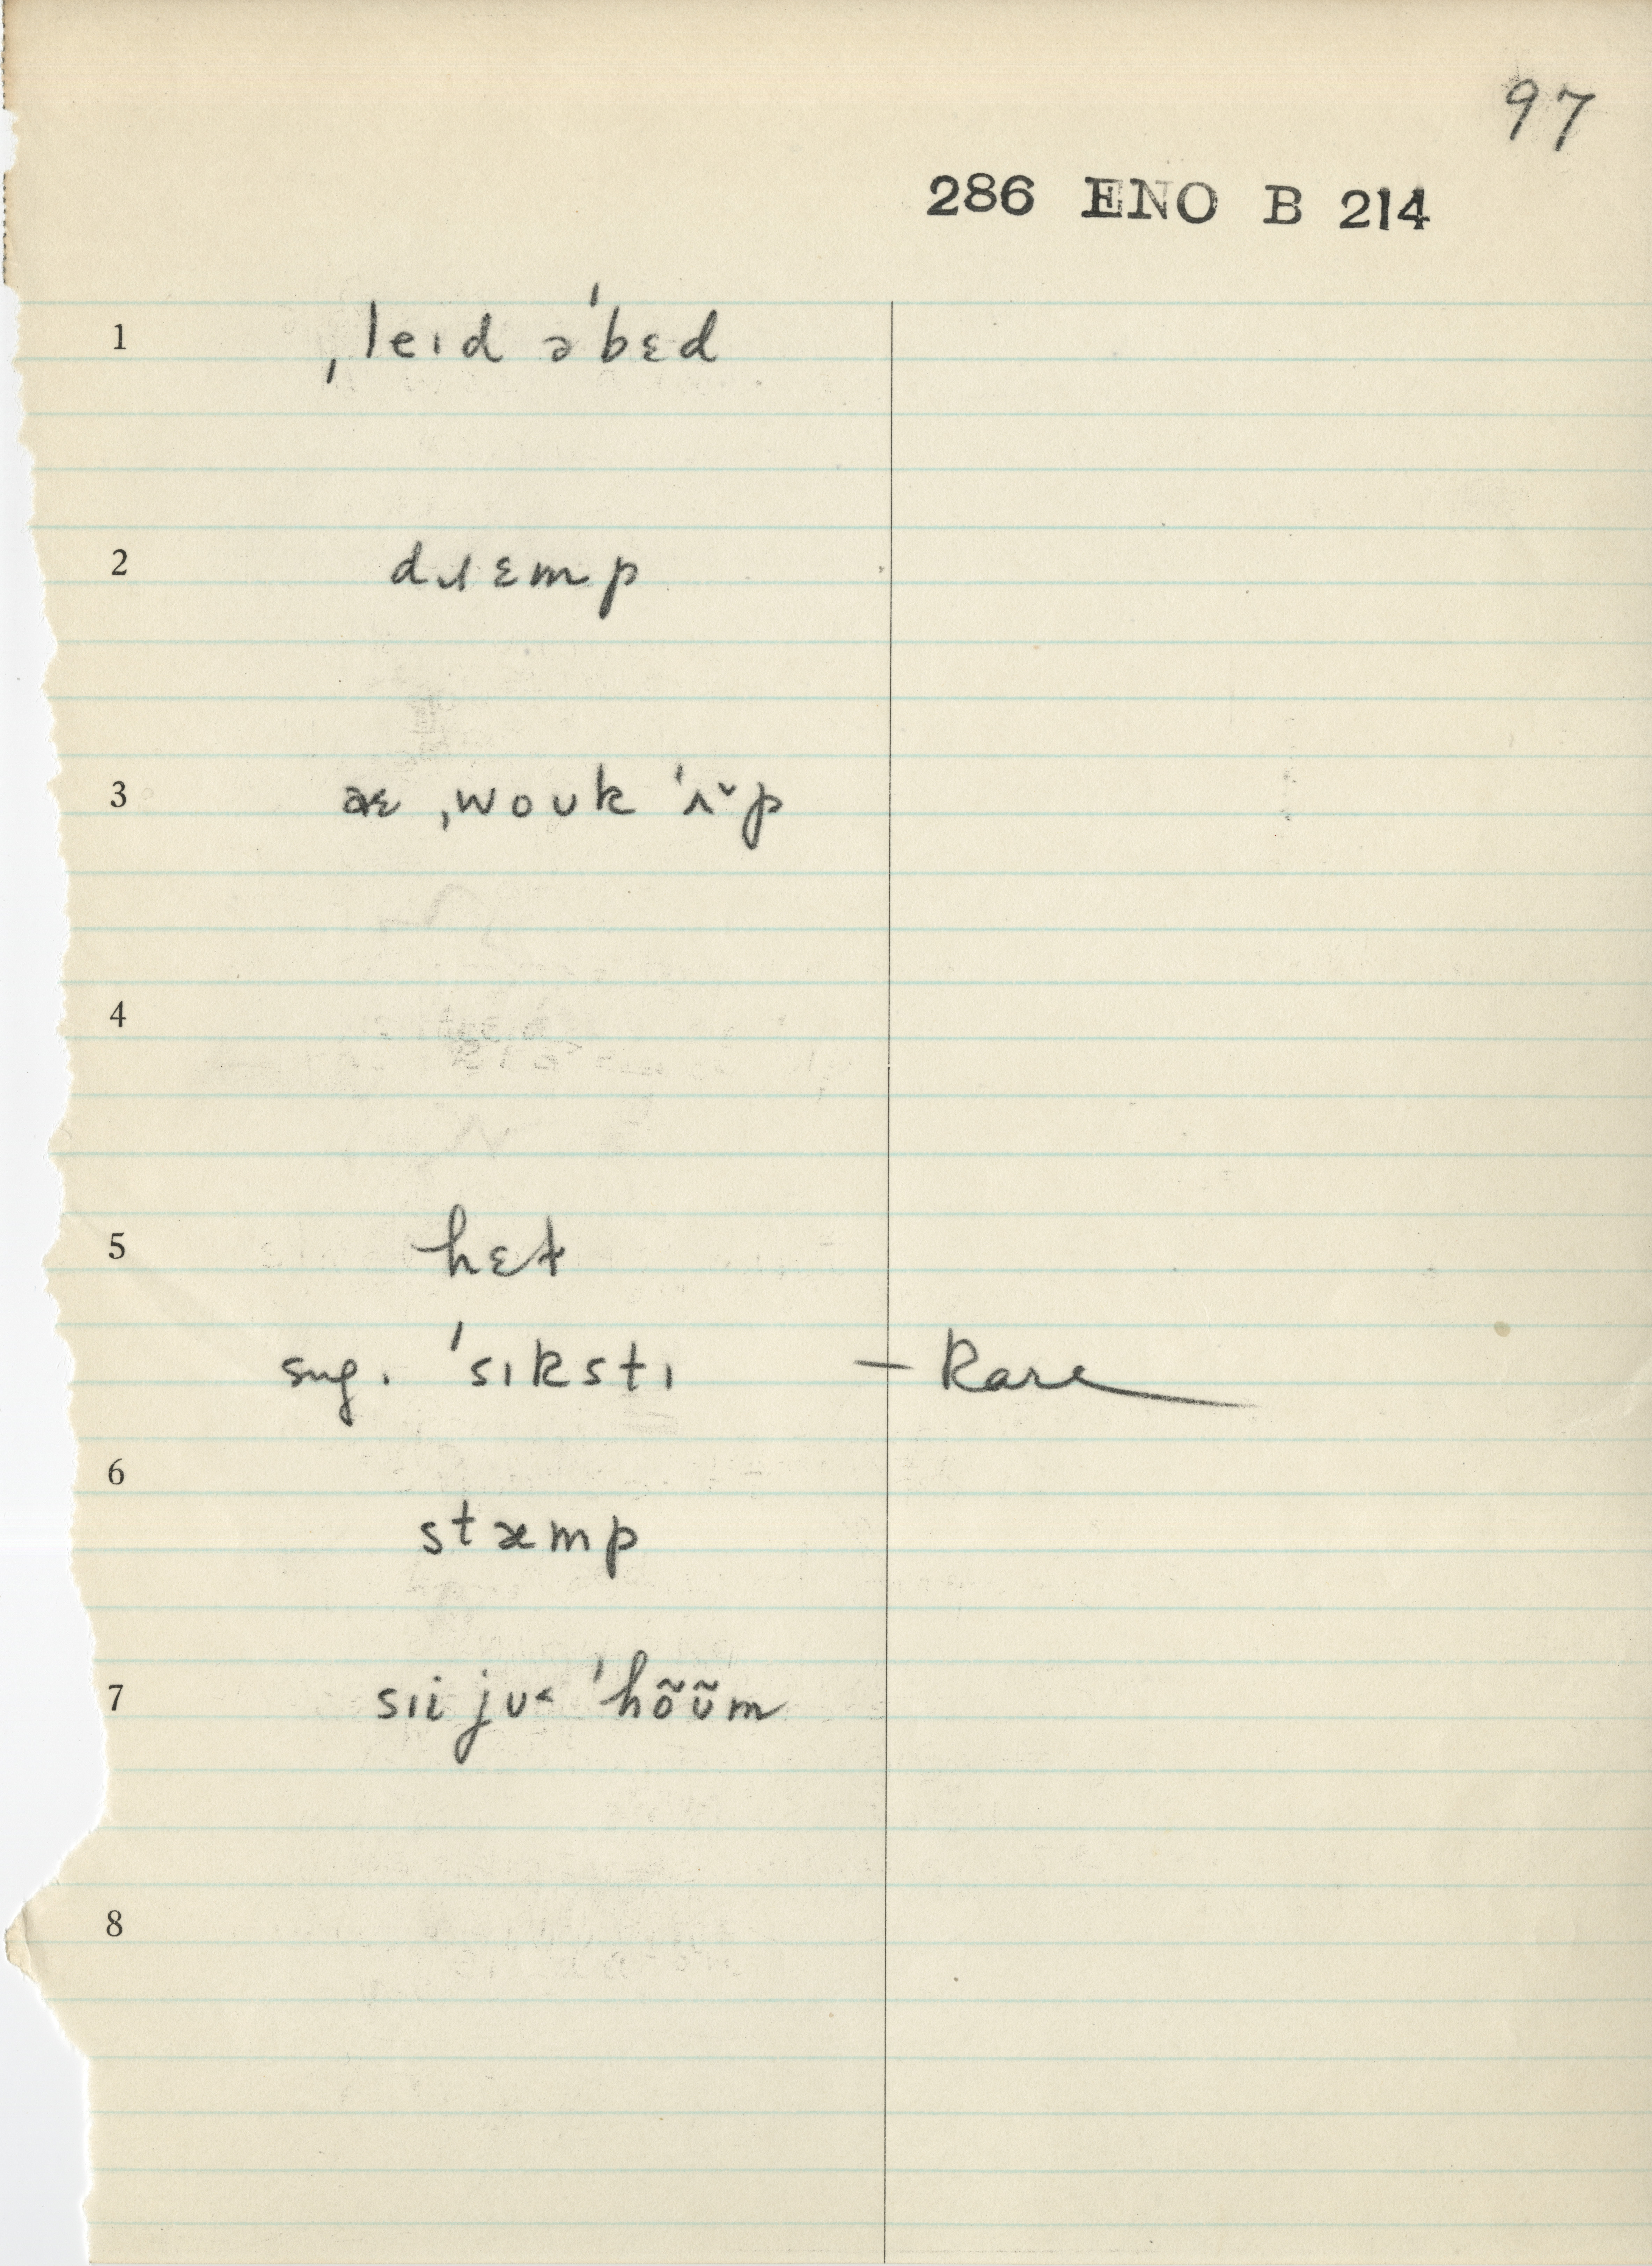 97
286 ENO B 214
1 ˌleɪd əˈbɛd
2 dɹɛmp
3 ˌwoʊk ˈʌ̌p
4
5 hɛt
sug. ˈsɪkstɪ — Rare
6 stæmp
7 sɪi jʊ˂ ˈhõʊ̃m
8